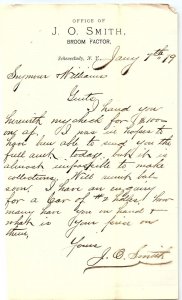 OFFICE OF
J. O. SMITH,
BROOM FACTOR,
Schenectady, N. Y. Jany 7th 19
Seymour Williams
Gents
I hand you
herewith my check for $1000
on ap. I was in hopes to
have been able to send you the
full amt today, but it is
almost impossible to make
collections. Will remit bal
soon. I have an enquiry
for a Car of #2 Hdls. How
many have you on hand &
what is your price on
them
Yours
J. O. Smith